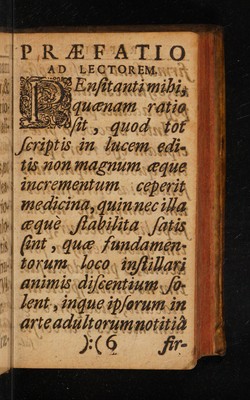 PRÆFATIO
AD LECTOREM.
PEnſitanti mihi,
quænam ratio
ſit, quod tot
ſcriptis in lucem edi-
tis non magnum æque
incrementum ceperit
medicina, quin nec illa
æquè ſtabilita ſatis
ſint, quæ fundamen-
torum loco inſtillari
animis diſcentium ſo-
lent, inque ipſorum in
arte adultorum notitiâ
):( 6 fir-